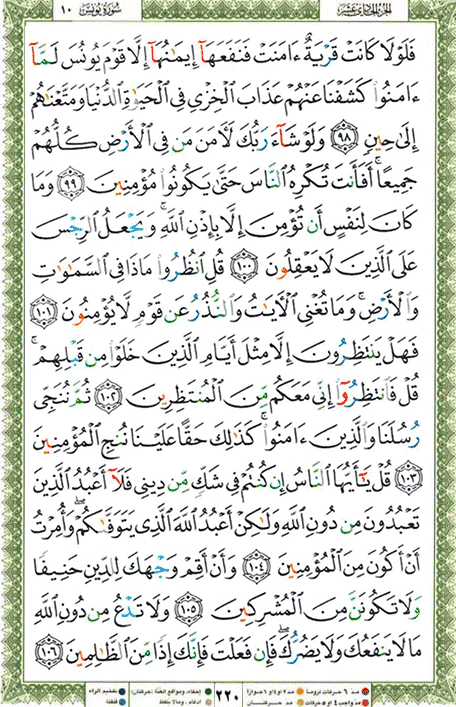 سُورَةُ يُونُسَ ١٠
الجزء الحادي عشر
فَلَوْلَا كَانَتْ قَرْيَةٌ ءَامَنَتْ فَنَفَعَهَآ إِيمَٰنُهَآ إِلَّا قَوْمَ يُونُسَ لَمَّآ
ءَامَنُوا۟ كَشَفْنَا عَنْهُمْ عَذَابَ ٱلْخِزْىِ فِى ٱلْحَيَوٰةِ ٱلدُّنْيَا وَمَتَّعْنَٰهُمْ
إِلَىٰ حِينٍ ٩٨ وَلَوْ شَآءَ رَبُّكَ لَءَامَنَ مَن فِى ٱلْأَرْضِ كُلُّهُمْ
جَمِيعًا ۚ أَفَأَنتَ تُكْرِهُ ٱلنَّاسَ حَتَّىٰ يَكُونُوا۟ مُؤْمِنِينَ ٩٩ وَمَا
كَانَ لِنَفْسٍ أَن تُؤْمِنَ إِلَّا بِإِذْنِ ٱللَّهِ ۚ وَيَجْعَلُ ٱلرِّجْسَ
عَلَى ٱلَّذِينَ لَا يَعْقِلُونَ ١٠٠ قُلِ ٱنظُرُوا۟ مَاذَا فِى ٱلسَّمَٰوَٰتِ
وَٱلْأَرْضِ ۚ وَمَا تُغْنِى ٱلْءَايَٰتُ وَٱلنُّذُرُ عَن قَوْمٍ لَّا يُؤْمِنُونَ ١٠١
فَهَلْ يَنتَظِرُونَ إِلَّا مِثْلَ أَيَّامِ ٱلَّذِينَ خَلَوْا۟ مِن قَبْلِهِمْ ۚ
قُلْ فَٱنتَظِرُوٓا۟ إِنِّى مَعَكُم مِّنَ ٱلْمُنتَظِرِينَ ١٠٢ ثُمَّ نُنَجِّى
رُسُلَنَا وَٱلَّذِينَ ءَامَنُوا۟ ۚ كَذَٰلِكَ حَقًّا عَلَيْنَا نُنجِ ٱلْمُؤْمِنِينَ
١٠٣ قُلْ يَٰٓأَيُّهَا ٱلنَّاسُ إِن كُنتُمْ فِى شَكٍّ مِّن دِينِى فَلَآ أَعْبُدُ ٱلَّذِينَ
تَعْبُدُونَ مِن دُونِ ٱللَّهِ وَلَٰكِنْ أَعْبُدُ ٱللَّهَ ٱلَّذِى يَتَوَفَّىٰكُمْ ۖ وَأُمِرْتُ
أَنْ أَكُونَ مِنَ ٱلْمُؤْمِنِينَ ١٠٤ وَأَنْ أَقِمْ وَجْهَكَ لِلدِّينِ حَنِيفًا
وَلَا تَكُونَنَّ مِنَ ٱلْمُشْرِكِينَ ١٠٥ وَلَا تَدْعُ مِن دُونِ ٱللَّهِ
مَا لَا يَنفَعُكَ وَلَا يَضُرُّكَ ۖ فَإِن فَعَلْتَ فَإِنَّكَ إِذًا مِّنَ ٱلظَّٰلِمِينَ ١٠٦
مدّ ٦ حركات لزوماً مدّ ٢ أو ٤ أو ٦ جوازاً
مدّ واجب ٤ أو ٥ حركات مدّ حركتان
٢٢٠
إخفاء، ومواقع الغنّة (حركتان) تفخيم الراء
إدغام، وما لا يلفظ قلقلة